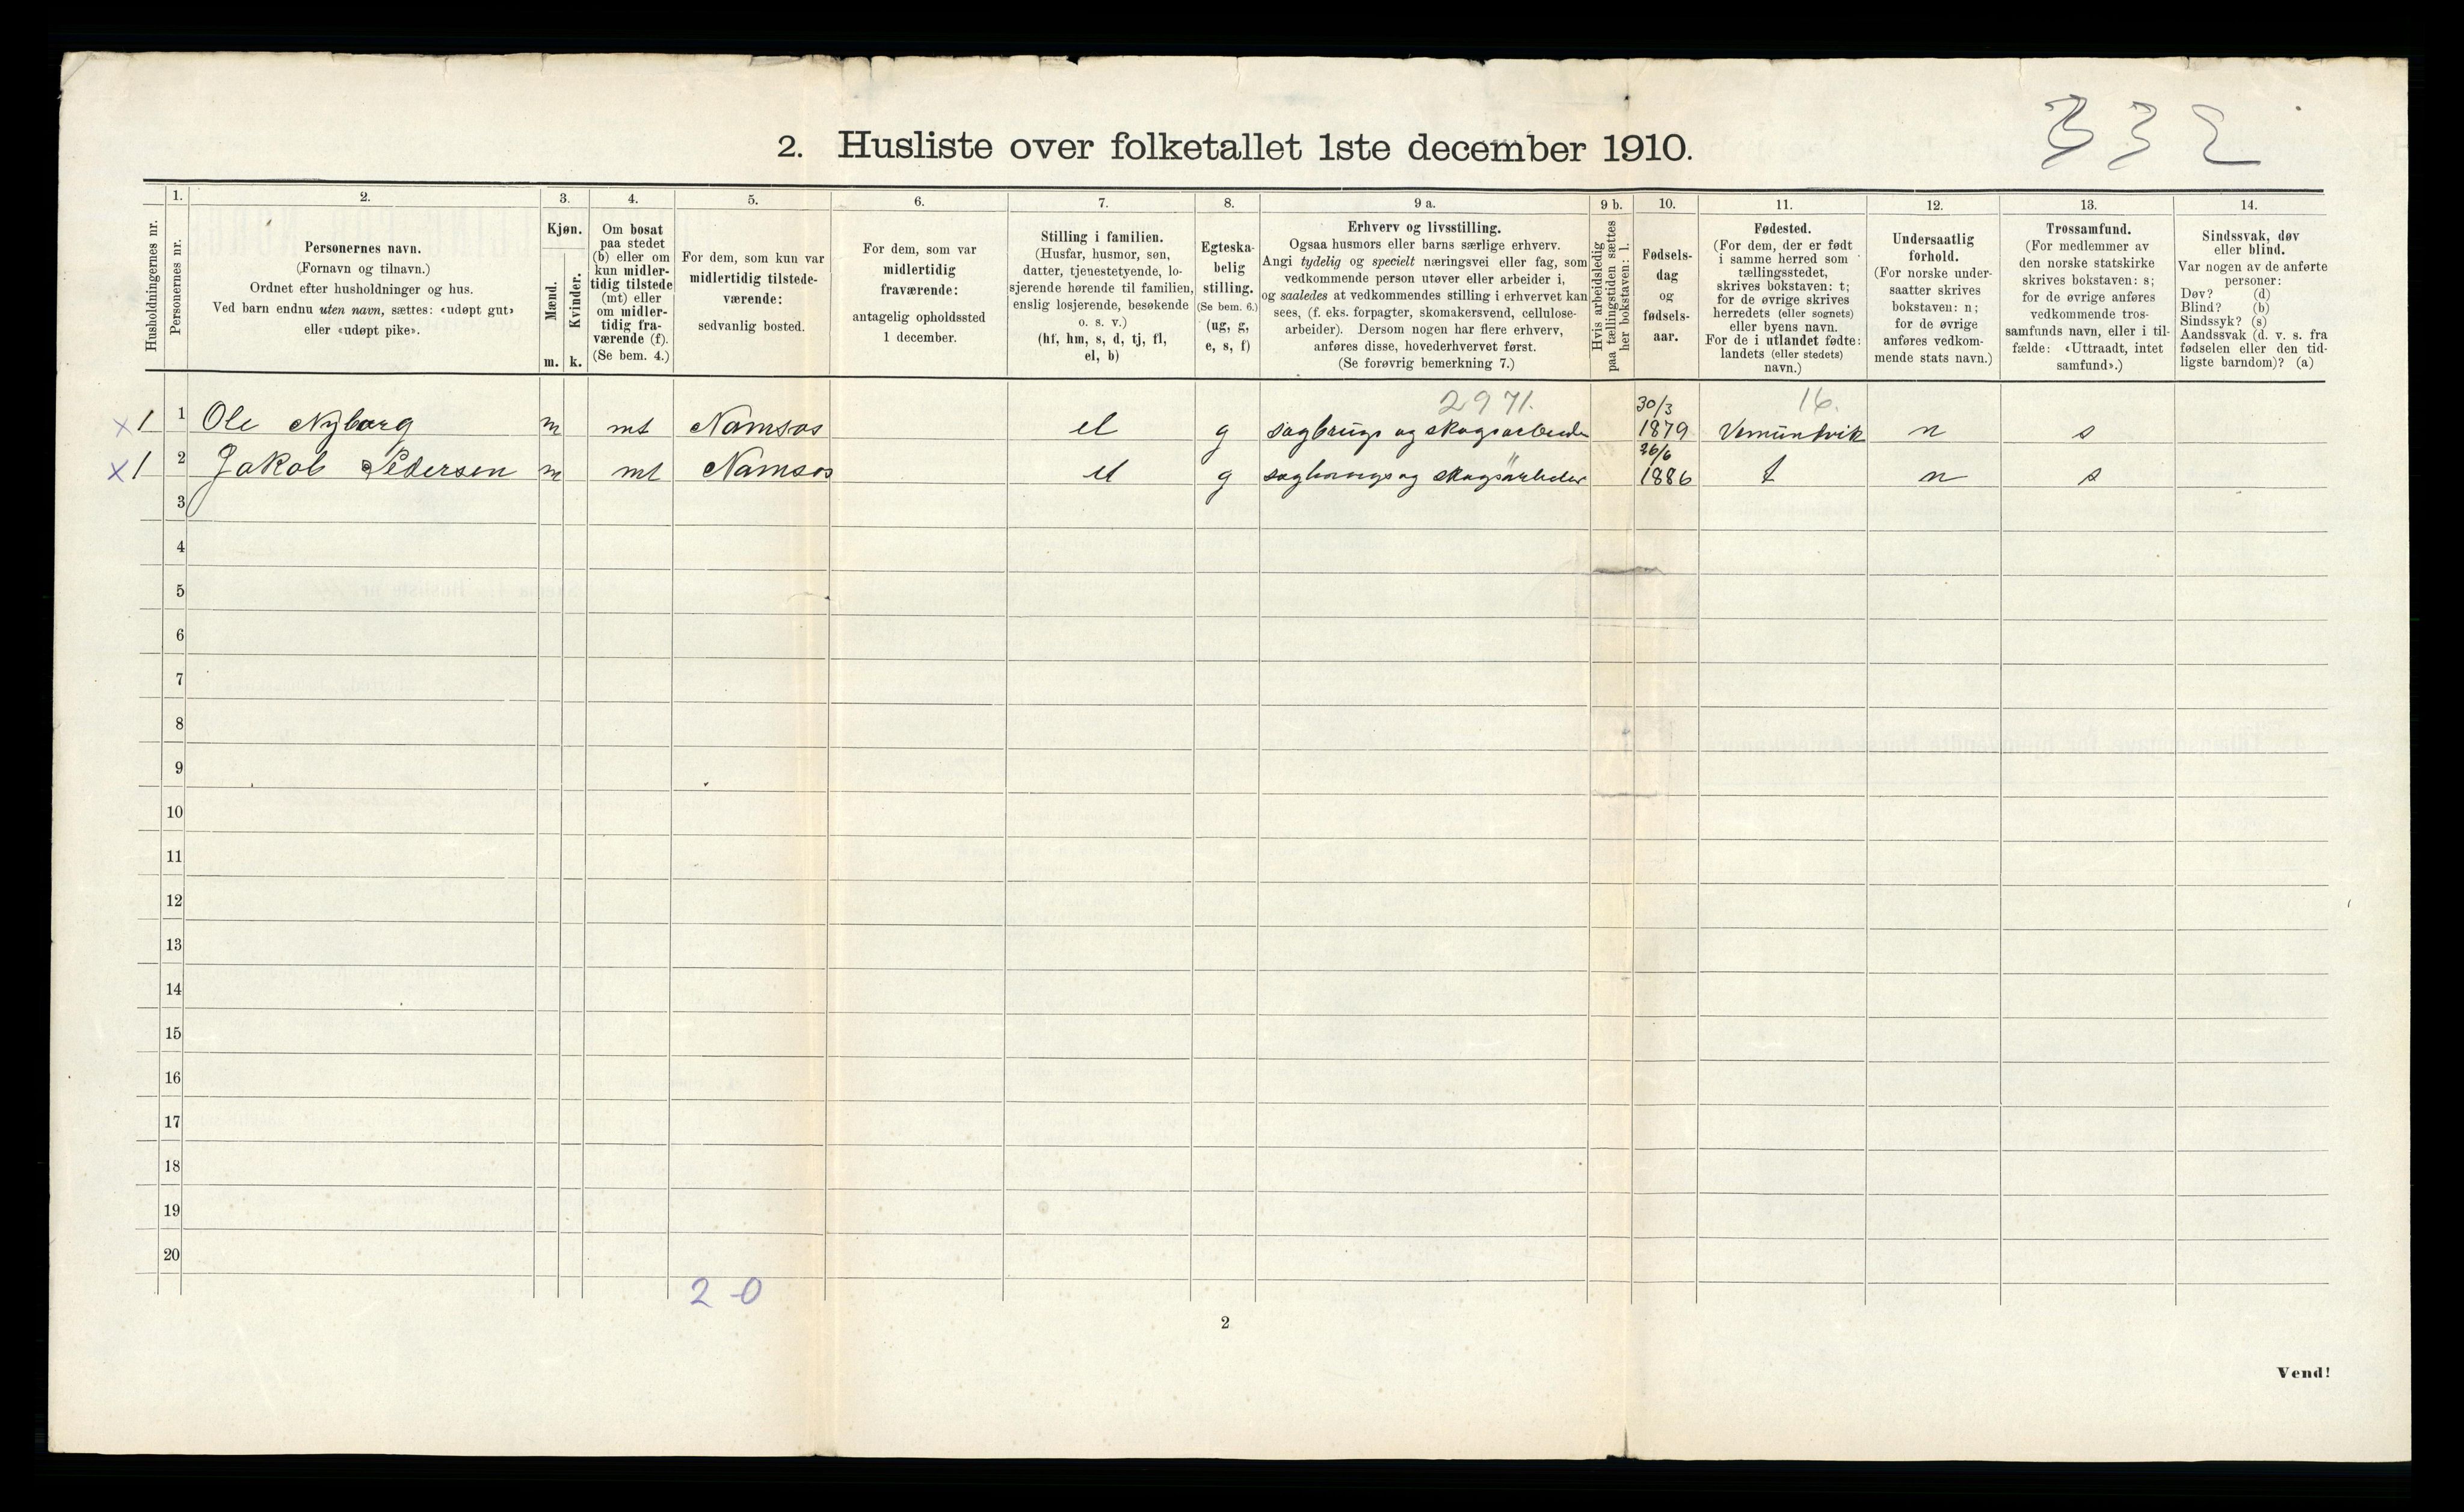 332
2. Husliste over folketallet 1ste december 1910.
Husholdningernes nr.
1.
Personernes nr.
2.
Personernes navn.
(Fornavn og tilnavn.)
Ordnet efter husholdninger og hus.
Ved barn endnu uten navn, sættes: «udøpt gut»
eller «udøpt pike».
3.
Kjøn.
Mænd.
m.
Kvinder.
k.
4.
Om bosat
paa stedet
(b) eller om
kun midler-
tidig tilstede
(mt) eller
om midler-
tidig fra-
værende (f).
(Se bem. 4.)
5.
For dem, som kun var
midlertidig tilstede-
værende:
sedvanlig bosted.
6.
For dem, som var
midlertidig
fraværende:
antagelig opholdssted
1 december.
7.
Stilling i familien.
(Husfar, husmor, søn,
datter, tjenestetyende, lo-
sjerende hørende til familien,
enslig losjerende, besøkende
o. s. v.)
(hf, hm, s, d, tj, fl,
el, b)
8.
Egteska-
belig
stilling.
(Se bem. 6.)
(ug, g,
e, s, f)
9 a.
Erhverv og livsstilling.
Ogsaa husmors eller barns særlige erhverv.
Angi tydelig og specielt næringsvei eller fag, som
vedkommende person utøver eller arbeider i,
og saaledes at vedkommendes stilling i erhvervet kan
sees, (f. eks. forpagter, skomakersvend, cellulose-
arbeider). Dersom nogen har flere erhverv,
anføres disse, hovederhvervet først.
(Se forøvrig bemerkning 7.)
9 b.
Hvis arbeidsledig
paa tællingstiden sættes
her bokstaven: l.
10.
Fødsels-
dag
og
fødsels-
aar.
11.
Fødested.
(For dem, der er født
i samme herred som
tællingsstedet,
skrives bokstaven: t;
for de øvrige skrives
herredets (eller sognets)
eller byens navn.
For de i utlandet fødte:
landets (eller stedets)
navn.)
12.
Undersaatlig
forhold.
(For norske under-
saatter skrives
bokstaven: n;
for de øvrige
anføres vedkom-
mende stats navn.)
13.
Trossamfund.
(For medlemmer av
den norske statskirke
skrives bokstaven: s;
for de øvrige anføres
vedkommende tros-
samfunds navn, eller i til-
fælde: «Uttraadt, intet
samfund».)
14.
Sindssvak, døv
eller blind.
Var nogen av de anførte
personer:
Døv? (d)
Blind? (b)
Sindssyk? (s)
Aandssvak (d. v. s. fra
fødselen eller den tid-
ligste barndom)? (a)
2971. 30/3 16.
x 1 1 Ole Nyborg m mt Namsos el g sagbrugs og skogsarbeider 1879 Vemundvik n s
26/6
x 1 2 Jakob Pedersen m mt Namsos el g sagbrugs og skogsarbeider 1886 t n s
3
4
5
6
7
8
9
10
11
12
13
14
15
16
17
18
19
20
2-0
2
Vend!